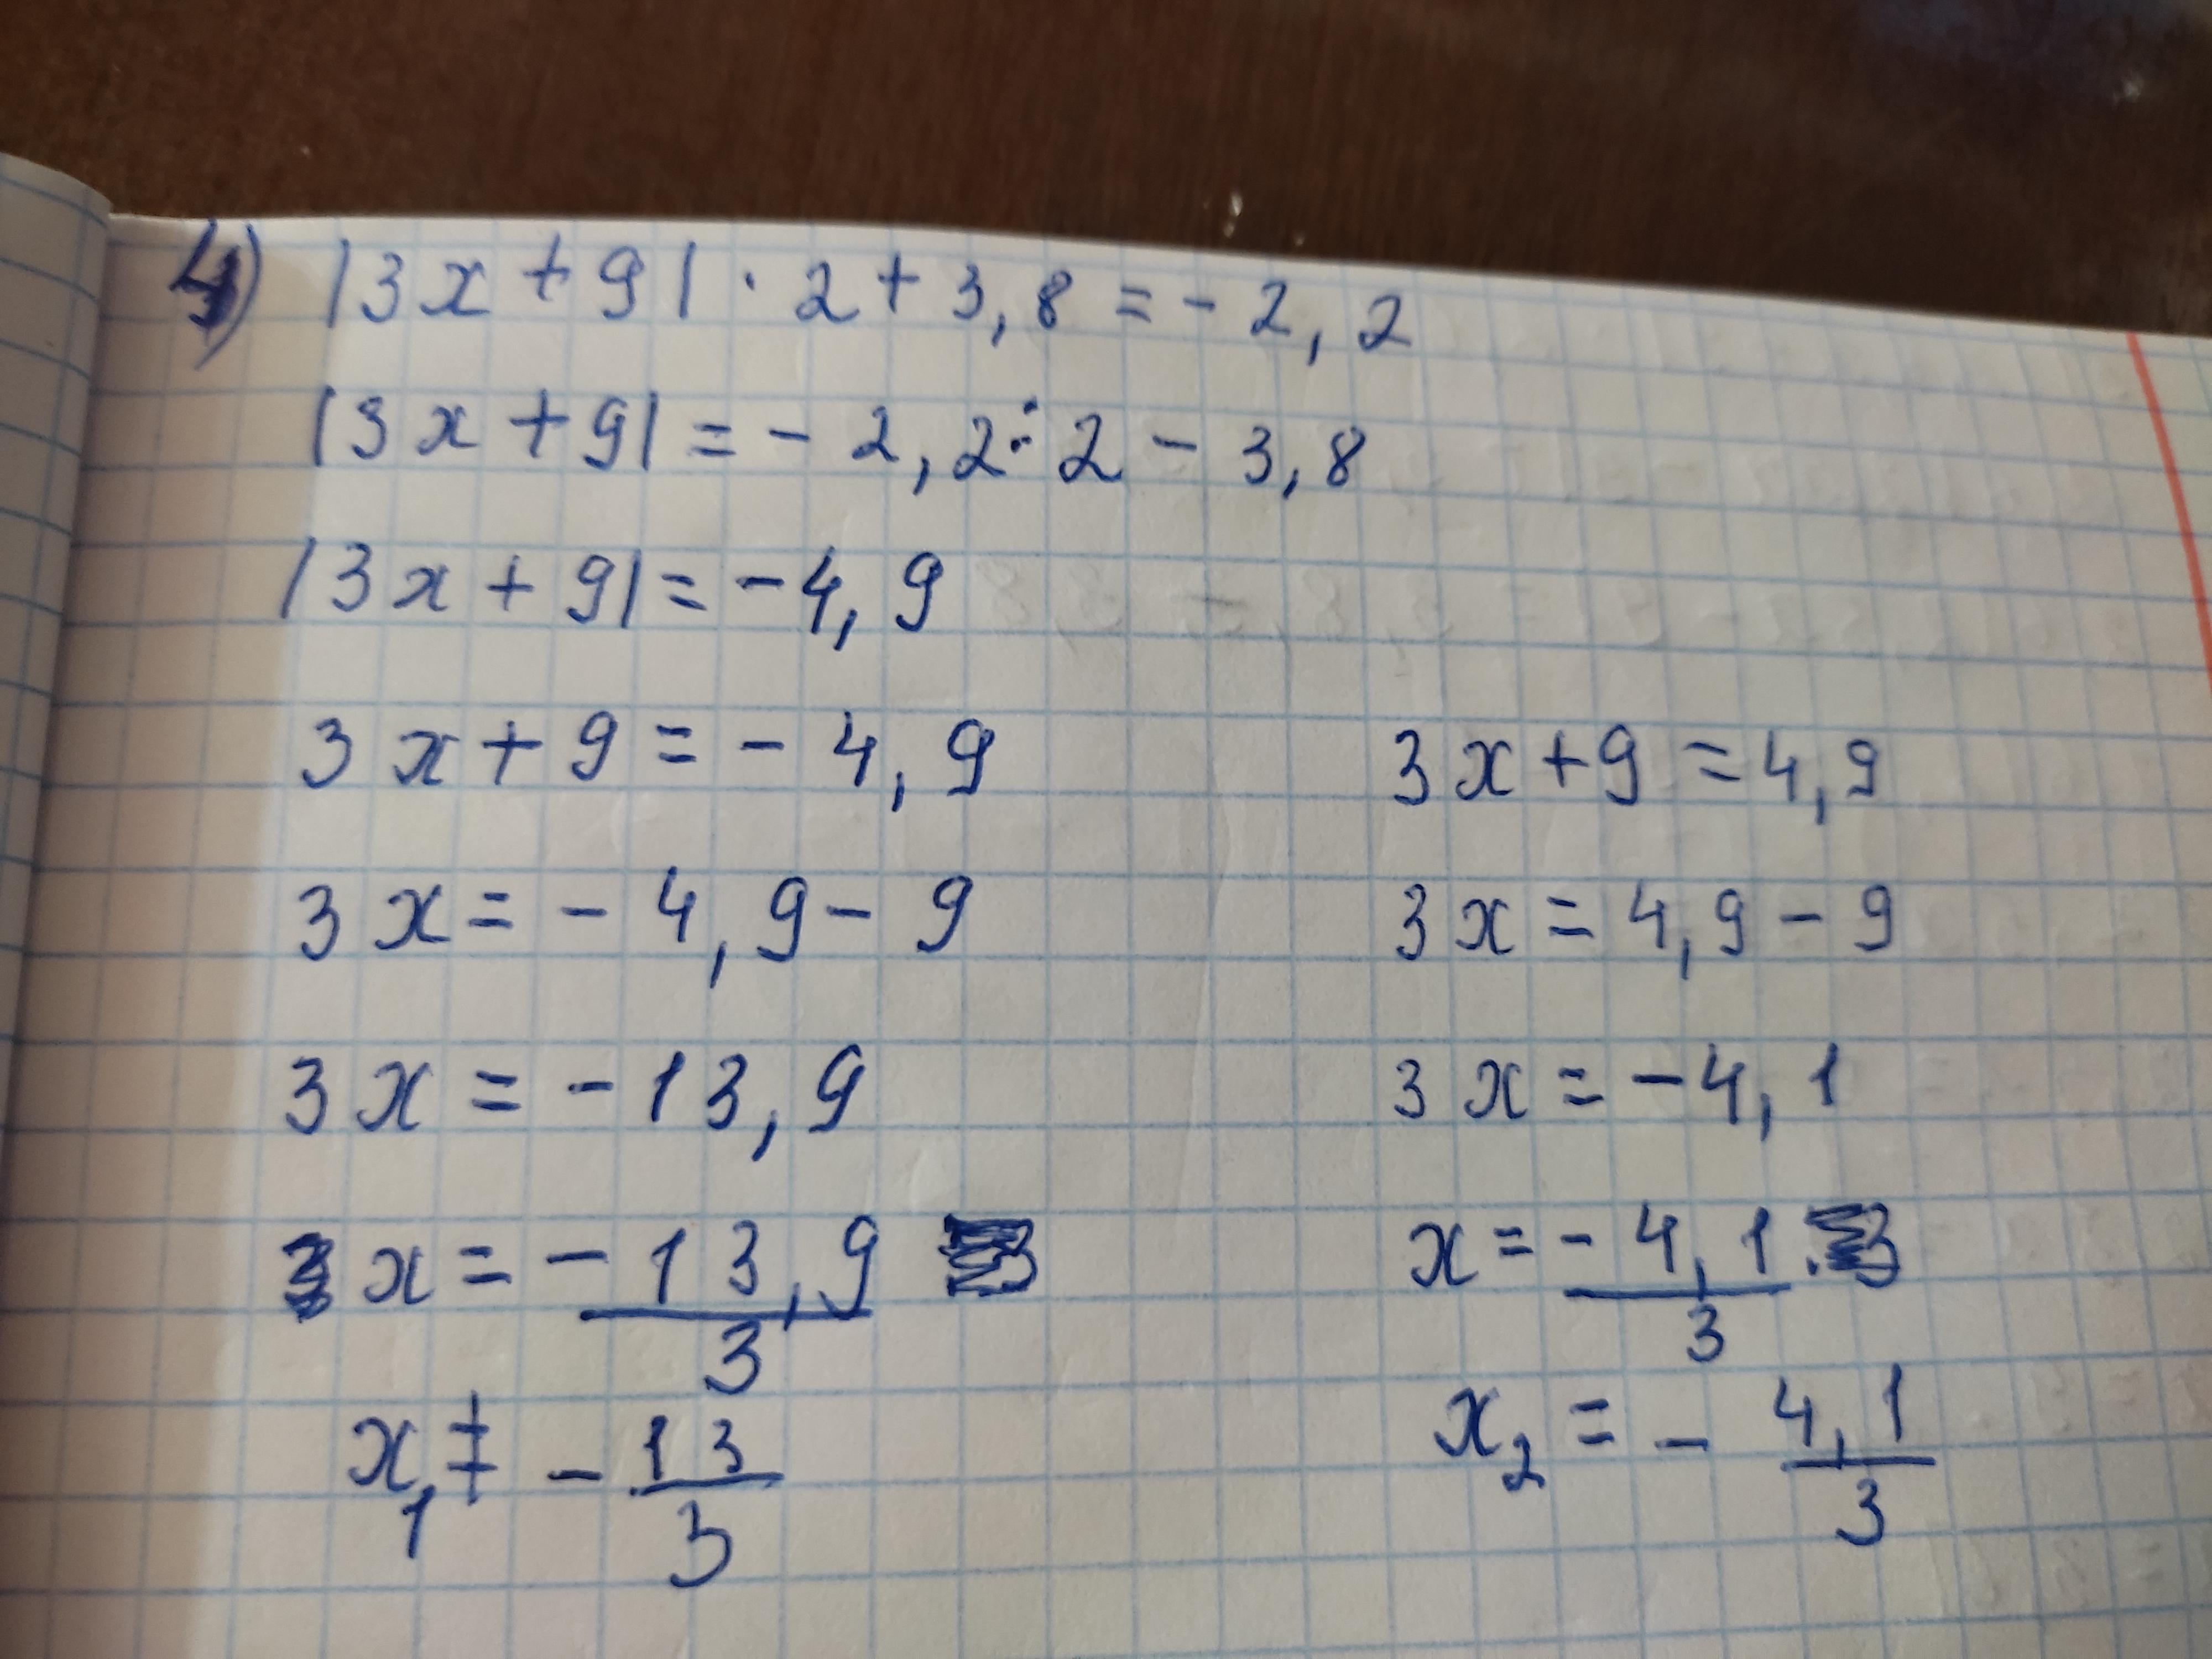 4) |3x + 9| · 2 + 3,8 = - 2,2
|3x + 9| = - 2,2 : 2 - 3,8
|3x + 9| = - 4,9
3x + 9 = - 4,9
3x + 9 = 4,9
3x = - 4,9 - 9
3x = 4,9 - 9
3x = - 13,9
3x = - 4,1
x = - 13,9
3
x = - 4,1
3
x₁ = - 13
3
x₂ = - 4,1
3